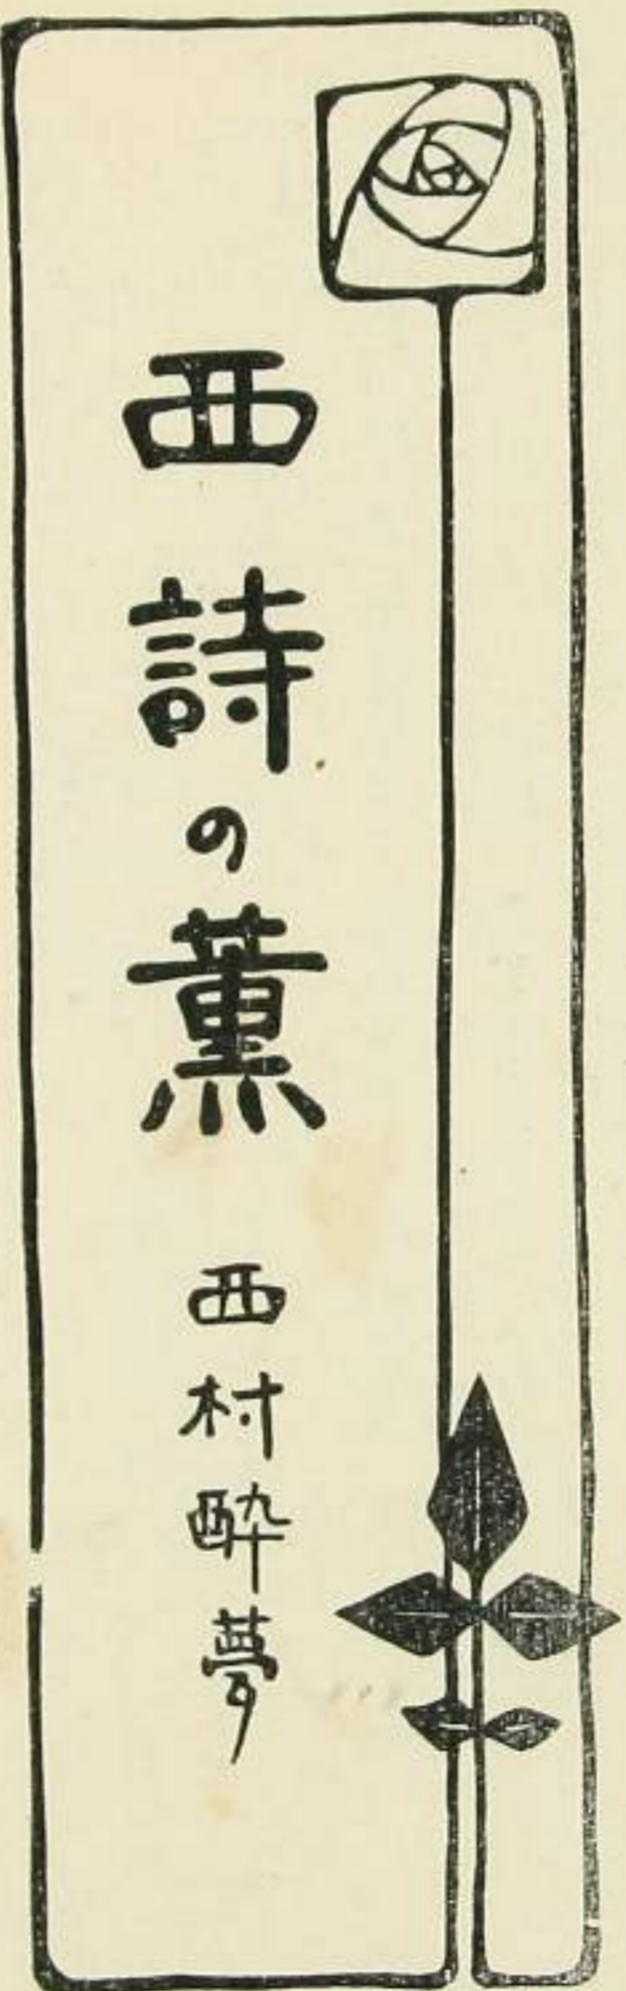 西詩の薫
西村酔夢